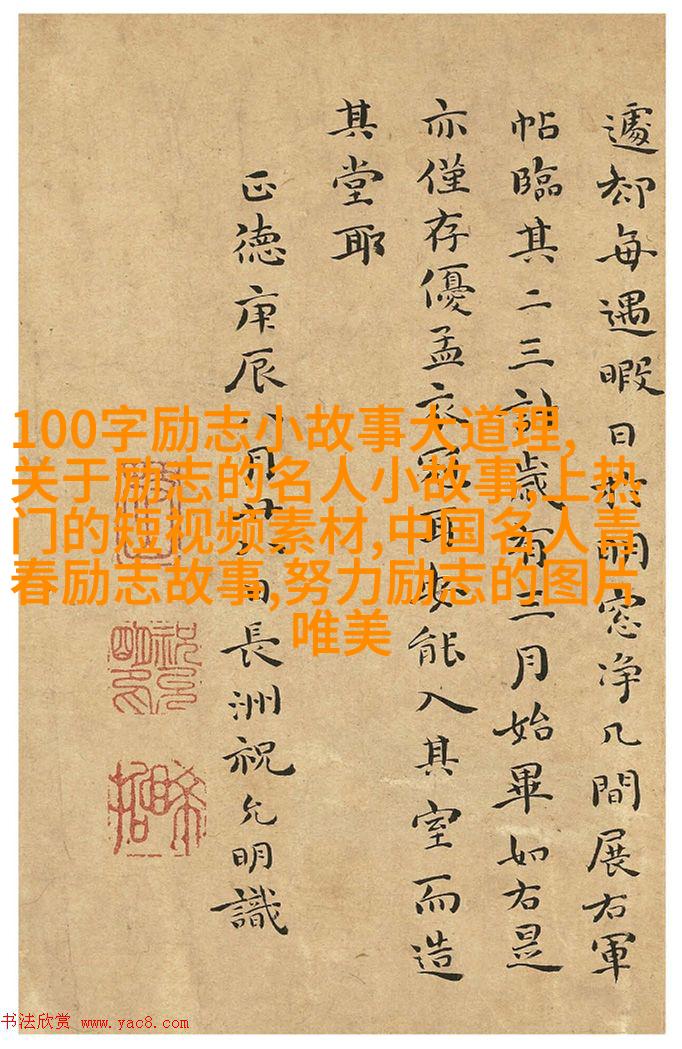 遽却每遇暇日於明窓净几間展右軍
帖臨其二三計歲有三月始畢如右是
亦僅存優孟衣冠耳安能入其室而造
其堂耶
正德庚辰八月廿日長洲祝允明識
100字励志小故事大道理,
关于励志的名人小故事,上热
门的短视频素材,中国名人青
春励志故事,努力励志的图片
唯美
书法欣赏 www.yac8.com